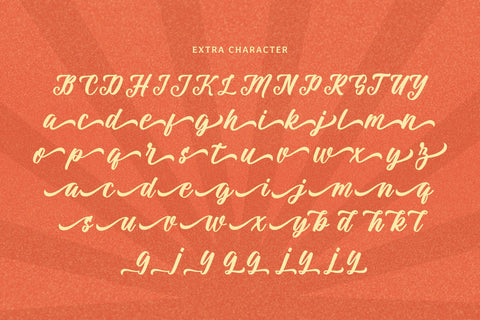 EXTRA CHARACTER
B C D H I J K L M N P R S T U Y
a c d e f g h i k j l m n
o p q r s t u v w x y z
a c d e g i j m n q
s u v w x y b d h k l
g j y g g j y j y